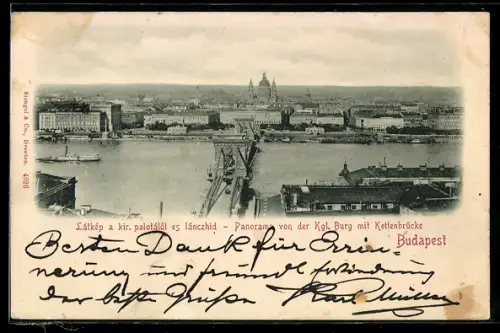 Stengel & Co., Dresden. 4026
Látkép a kir. palotától és lánczhid - Panorama von der Kgl. Burg mit Kettenbrücke
Budapest
Besten Dank für Erin-
nerung und freundl.
der besten Grüße Karl Müller